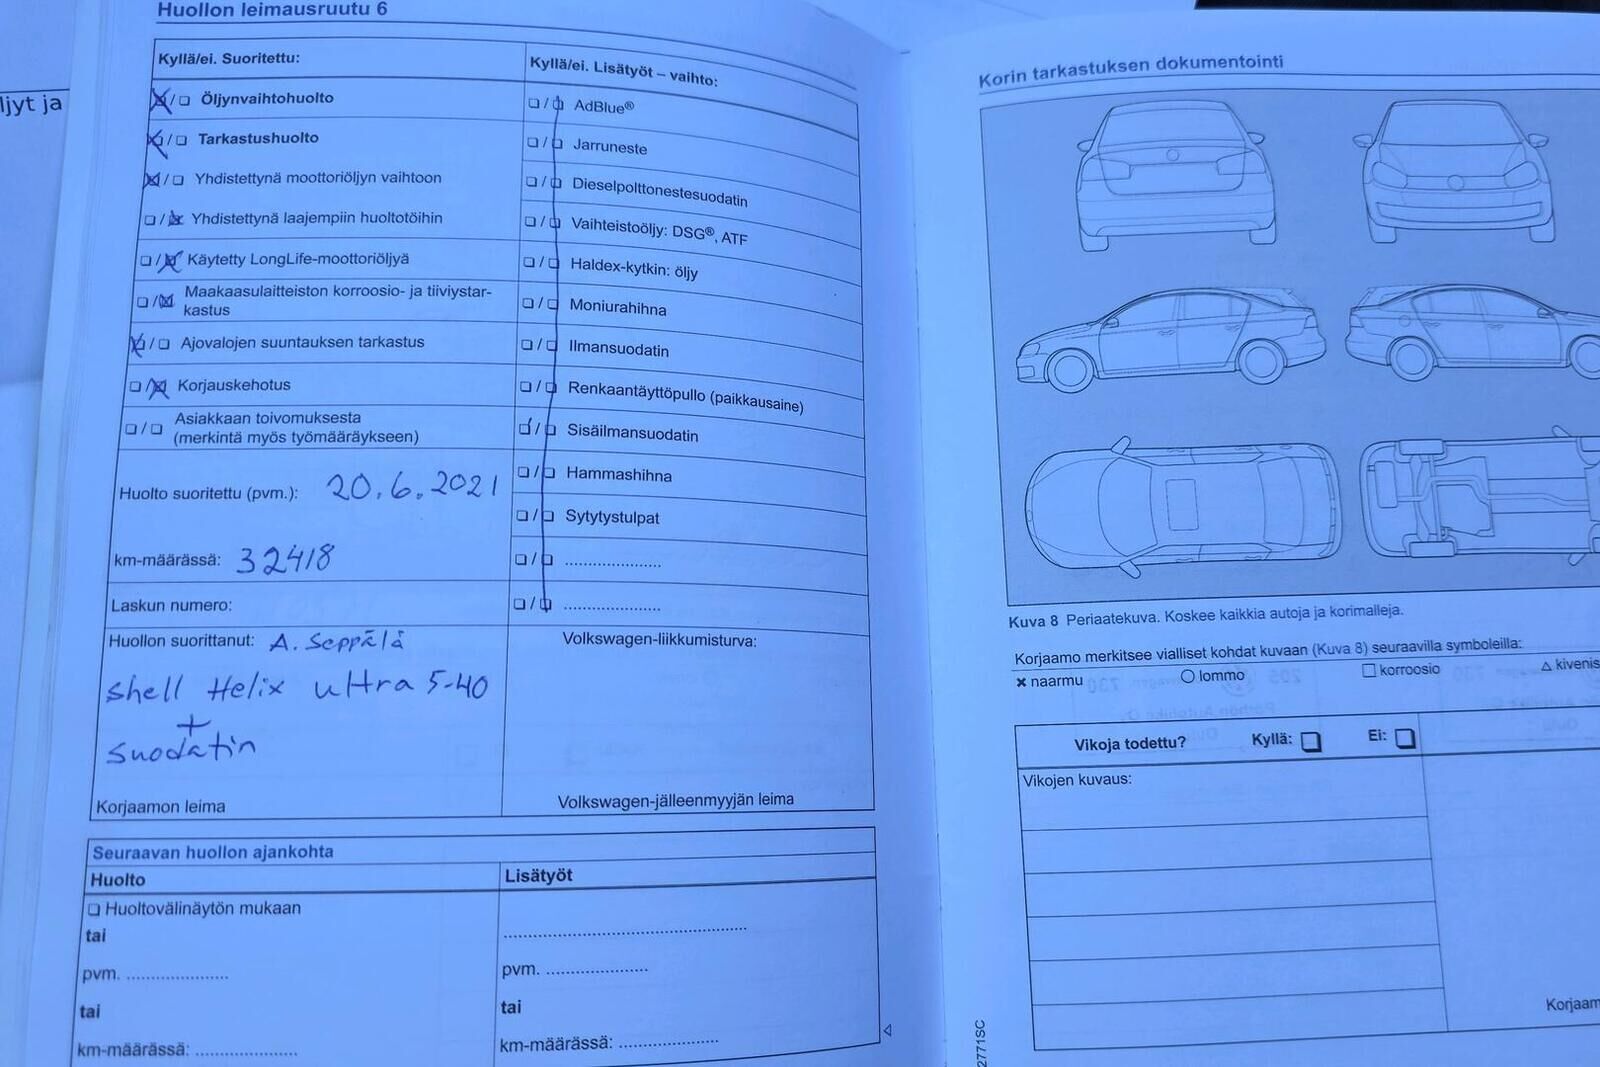 ljyt ja
Huollon leimausruutu 6
Kyllä/ei. Suoritettu:
Öljynvaihtohuolto
Tarkastushuolto
Yhdistettynä moottoriöljyn vaihtoon
Yhdistettynä laajempiin huoltotöihin
Käytetty LongLife-moottoriöljyä
Maakaasulaitteiston korroosio- ja tiiviystar-
kastus
Ajovalojen suuntauksen tarkastus
Korjauskehotus
Asiakkaan toivomuksesta
(merkintä myös työmääräykseen)
Huolto suoritettu (pvm.): 20.6.2021
km-määrässä: 32418
Laskun numero:
Huollon suorittanut: A. Seppälä
Shell Helix ultra 5-40
+
suodatin
Korjaamon leima
Kyllä/ei. Lisätyöt – vaihto:
AdBlue®
Jarruneste
Dieselpolttonestesuodatin
Vaihteistoöljy: DSG®, ATF
Haldex-kytkin: öljy
Moniurahihna
Ilmansuodatin
Renkaantäyttöpullo (paikkausaine)
Sisäilmansuodatin
Hammashihna
Sytytystulpat
Volkswagen-liikkumisturva:
Volkswagen-jälleenmyyjän leima
Seuraavan huollon ajankohta
Huolto
Huoltovälinäytön mukaan
tai
pvm. ....................
tai
km-määrässä: ....................
Lisätyöt
pvm. ....................
tai
km-määrässä: ....................
Korin tarkastuksen dokumentointi
Kuva 8 Periaatekuva. Koskee kaikkia autoja ja korimalleja.
Korjaamo merkitsee vialliset kohdat kuvaan (Kuva 8) seuraavilla symboleilla:
× naarmu ○ lommo □ korroosio △ kivenis
Vikoja todettu? Kyllä: Ei:
Vikojen kuvaus:
Korjaam
2771SC